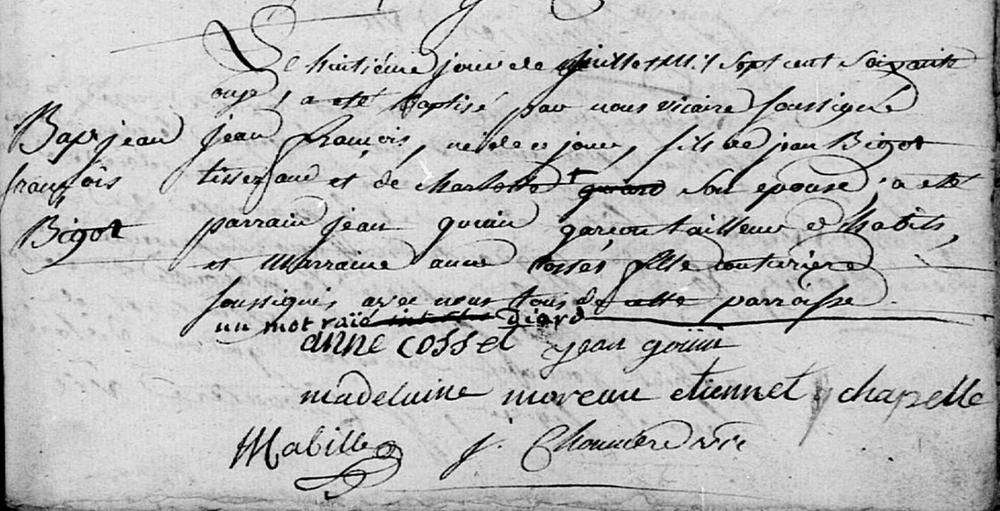 Bap. jean
françois
Bigot
Le huitiéme jour de juillet mil sept cent soixante
onze, a eté baptisé par nous vicaire soussigné
jean françois, né de ce jour, fils de jean Bigot
tisserand et de charlotte + son epouse a eté
parrain jean gouin garcon tailleur d'habits,
et marraine anne cosset fille couturiere
soussignés avec nous tous de cette parroisse.
un mot raïé diard
anne cosset jean gouin
madelaine moreau etienne chapelle
Mabille j. Chouniere vic